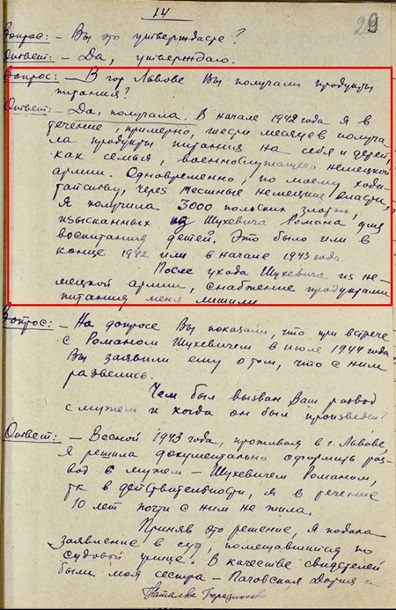 14
29
Вопрос: – Вы это утверждаете?
Ответ: – Да, утверждаю.
Вопрос: – В гор Львове Вы получали продукты
питания?
Ответ: – Да, получала. В начале 1942 года я в
течение, примерно, шести месяцев получа-
ла продукты питания на себя и детей,
как семья, военнослужащего немецкой
армии. Одновременно, по моему хода-
тайству, через местные немецкие власти,
я получила 3000 польских злотых,
взысканных из Шухевича Романа, для
воспитания детей. Это было или в
конце 1942 или в начале 1943 года.
После ухода Шухевича из не-
мецкой армии, снабжение продуктами
питания меня лишили.
Вопрос: – На допросе Вы показали, что при встрече
с Романом Шухевичем в июле 1944 года
Вы заявили ему о том, что с ним
развелись.
Чем был вызван Ваш развод
с мужем и когда он был произведен?
Ответ: – Весной 1943 года, проживая в г. Львове,
я решила документально оформить раз-
вод с мужем – Шухевичем Романом,
тк в действительности, я в течение
10 лет почти с ним не жила.
Приняв это решение, я подала
заявление в суд, помещавшийся по
судовой улице. В качестве свидетелей
были моя сестра –